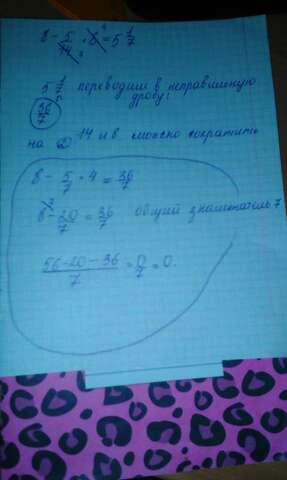 8 - 5/14 · 8 = 5 1/7
7 4
5 1/7 переводим в неправильную
дробь:
36/7
на 2 14 и 8 можно сократить
8 - 5/7 · 4 = 36/7
8 - 20/7 = 36/7 общий знаменатель 7
56-20-36/7 = 0/7 = 0.